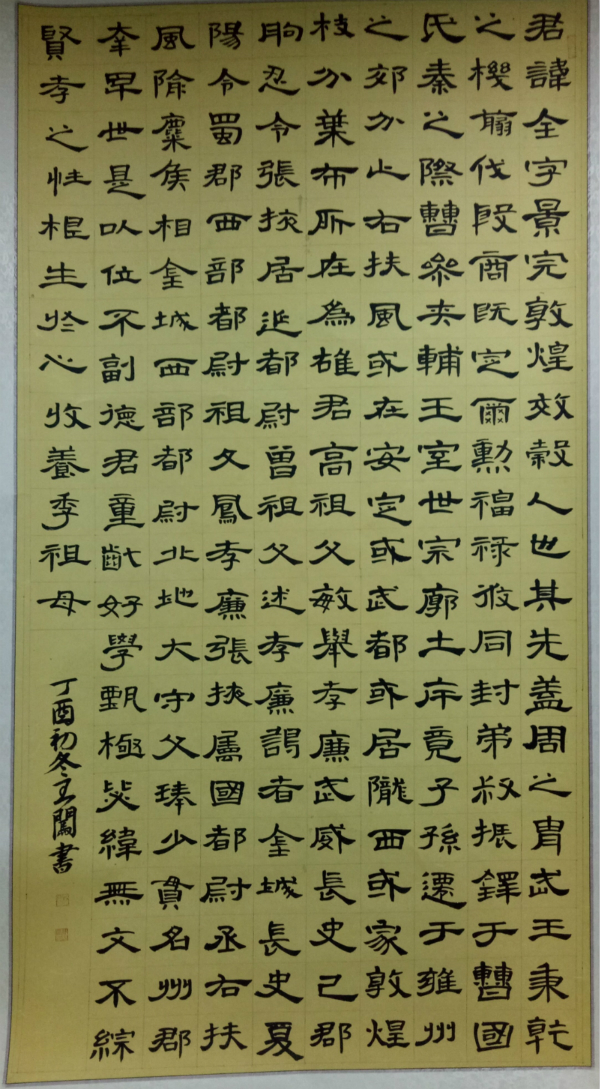 君諱全字景完敦煌效穀人也其先蓋周之冑武王秉乾
之機翦伐殷商既定爾勳福祿攸同封弟叔振鐸于曹國
氏秦之際曹參夾輔王室世宗廓土斥竟子孫遷于雍州
之郊分止右扶風或在安定或武都或居隴西或家敦煌
枝分葉布所在為雄君高祖父敏舉孝廉武威長史巳郡
朐忍令張掖居延都尉曾祖父述孝廉謁者金城長史夏
陽令蜀郡西部都尉祖父鳳孝廉張掖屬國都尉丞右扶
風隃麋侯相金城西部都尉北地大守父琫少貫名州郡
幸早世是以位不副德君童齔好學甄極毖緯無文不綜
賢孝之性根生於心收養季祖母
丁酉初冬王闖書